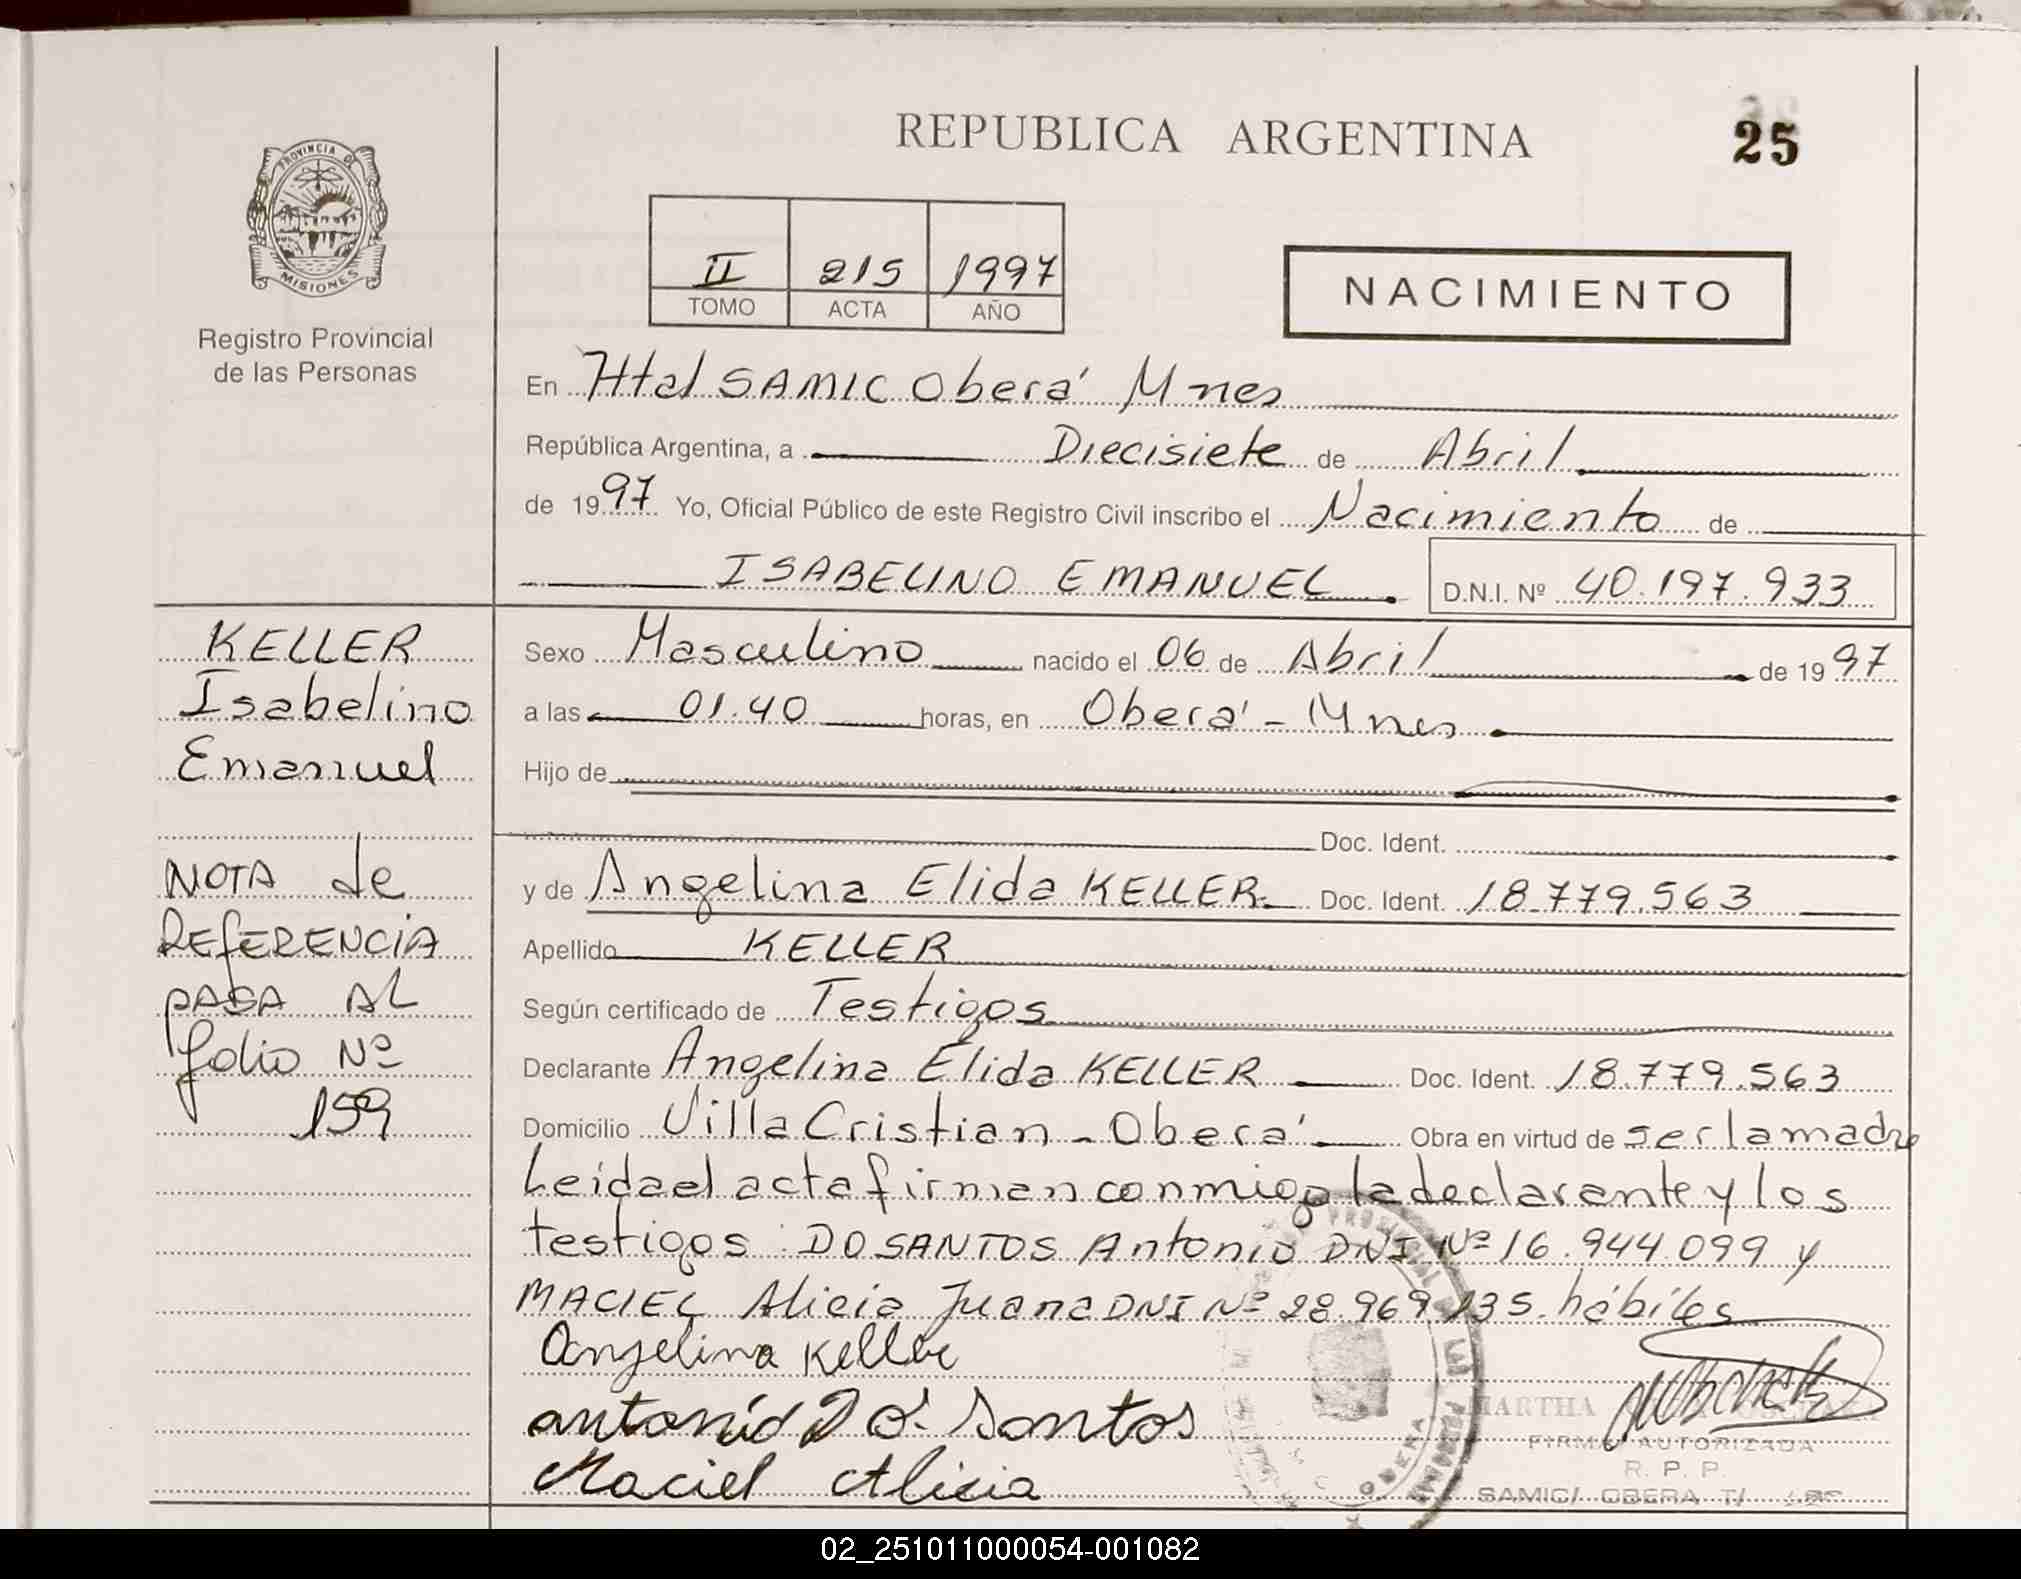 REPUBLICA ARGENTINA
25
PROVINCIA DE
MISIONES
Registro Provincial
de las Personas
II 215 1997
TOMO ACTA AÑO
NACIMIENTO
En Htal SAMIC Oberá Mnes
República Argentina, a Diecisiete de Abril
de 1997 Yo, Oficial Público de este Registro Civil inscribo el Nacimiento de
ISABELINO EMANUEL. D.N.I. Nº 40.197.933
KELLER
Isabelino
Emanuel
NOTA de
REfERENCiA
PASA AL
folio Nº
159
Sexo Masculino nacido el 06 de Abril de 1997
a las 01.40 horas, en Oberá - Mnes
Hijo de
Doc. Ident.
y de Angelina Elida KELLER. Doc. Ident. 18.779.563
Apellido KELLER
Según certificado de Testigos
Declarante Angelina Elida KELLER Doc. Ident. 18.779.563
Domicilio Villa Cristian - Oberá Obra en virtud de ser la madre
Leída el acta firman conmigo la declarante y los
testigos: DO SANTOS Antonio DNI Nº 16.944.099 y
MACIEL Alicia Juana DNI Nº 28.969.135. hábiles
Angelina Keller
antonio Do Santos
Maciel Alicia
MARTHA
FIRMA AUTORIZADA
R. P. P.
SAMIC/ OBERA T/
OBERA
02_251011000054-001082